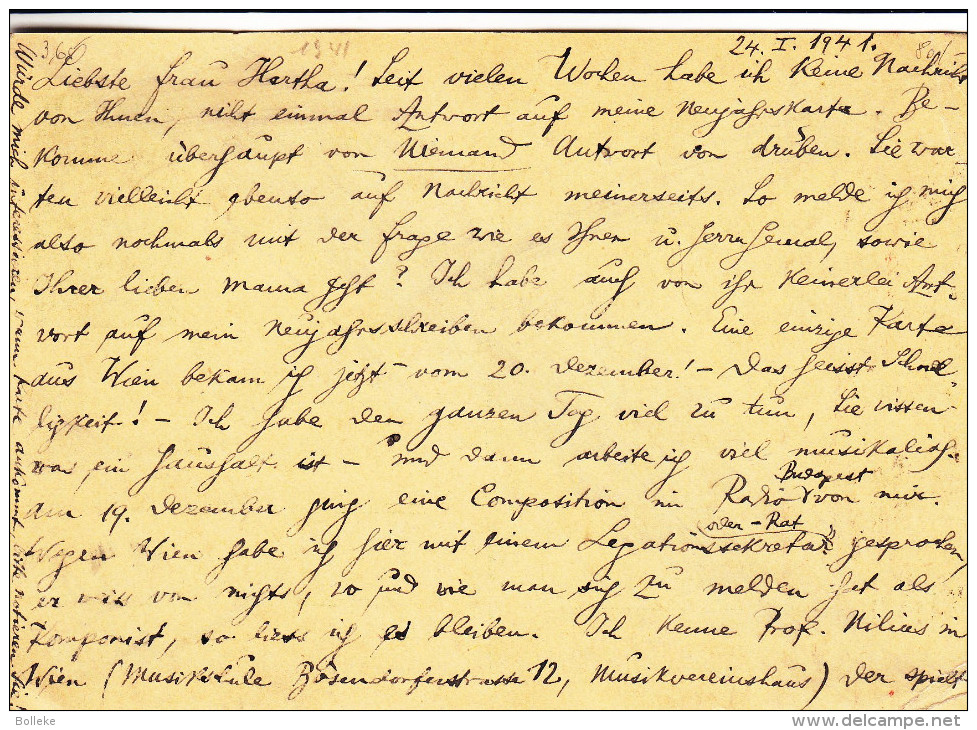 366
1941
24. I. 1941.
Liebste Frau Hertha! Seit vielen Wochen habe ich keine Nachricht
von Ihnen, nicht einmal Antwort auf meine Neujahrskarte. Be-
komme überhaupt von Niemand Antwort von drüben. Sie war-
ten vielleicht ebenso auf Nachricht meinerseits. So melde ich mich
also nochmals mit der Frage wie es Ihnen u. Herrn Gemal, sowie
Ihrer lieben Mama geht? Ich habe auch von ihr keinerlei Ant-
wort auf mein Neujahrsschreiben bekommen. Eine einzige Karte
aus Wien bekam ich jetzt vom 20. Dezember! – Das heisst Schnel-
ligkeit! – Ich habe den ganzen Tag viel zu tun, Sie wissen
was ein Haushalt ist – und dann arbeite ich viel musikalisch.
Am 19. Dezember ging eine Composition im Radio Budapest von mir.
Wegen Wien habe ich hier mit einem Legationssekretär (oder -Rat) gesprochen,
er weiss von nichts, wo und wie man sich zu melden hat als
Komponist, so liess ich es bleiben. Ich kenne Prof. Nilius in
Wien (Musikschule Bösendorferstrasse 12, Musikvereinshaus) der spielt
Würde mich interessieren, wann Karte ankommt, bitte notieren Sie!
Bolleke
www.delcampe.net